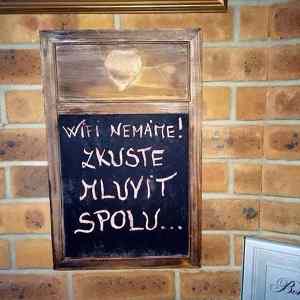 WiFi NEMÁME!
ZKUSTE
MLUVIT
SPOLU...